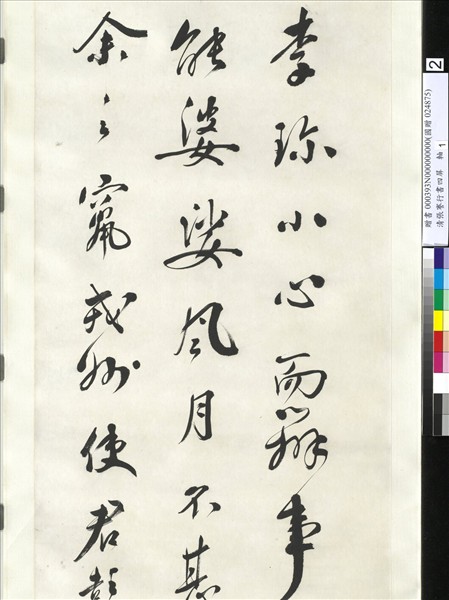 李珎小心而辦事
能婆娑風月不甚
余之竄戎州使君彭
2
贈書 000393N000000000(國贈 024875)
清張謇行書四屏 軸 1